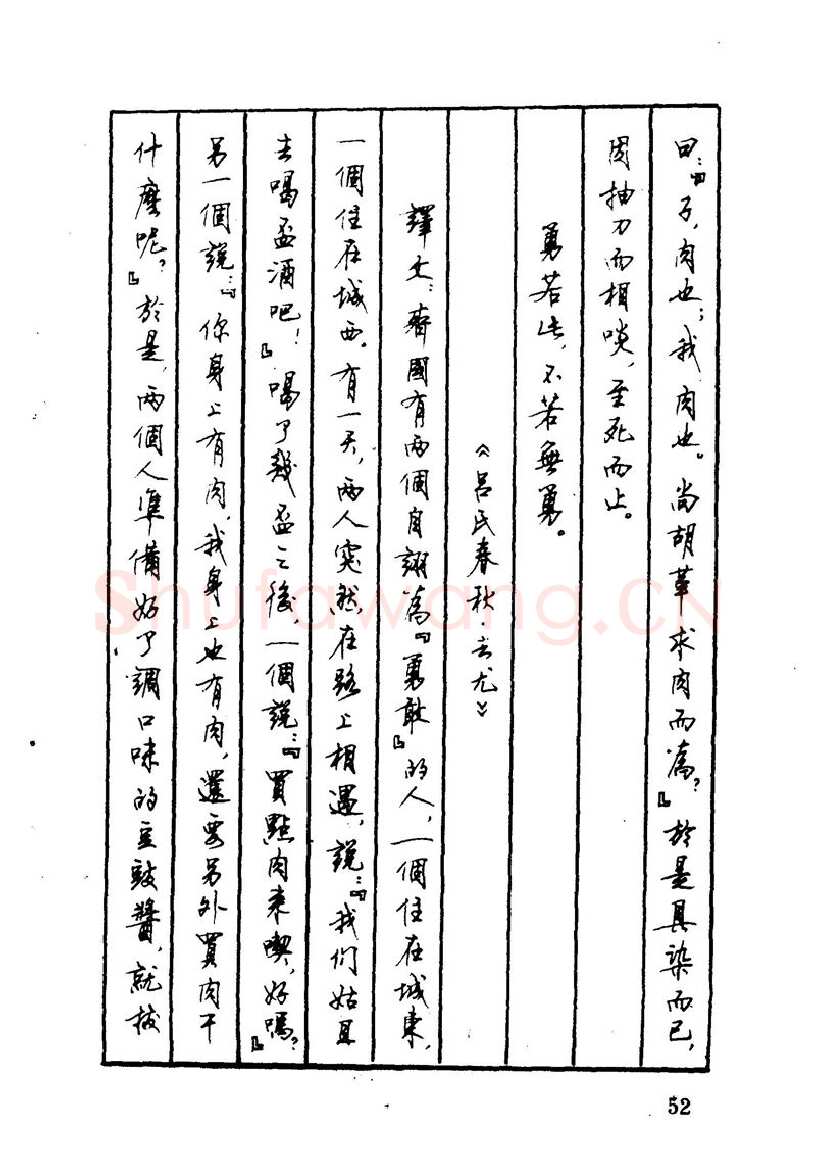 曰：『子，肉也；我，肉也。尚胡革求肉而為？』於是具染而已，
因抽刀而相啖，至死而止。
勇若此，不若無勇。
《呂氏春秋·去尤》
譯文：齊國有兩個自詡為『勇敢』的人，一個住在城東，
一個住在城西。有一天，兩人突然在路上相遇，說：『我們姑且
去喝盃酒吧！』喝了幾盃之後，一個說：『買點肉來喫，好嗎？』
另一個說：『你身上有肉，我身上也有肉，還要另外買肉干
什麼呢？』於是，兩個人準備好了調口味的豆豉醬，就拔
52
Shufawang.CN